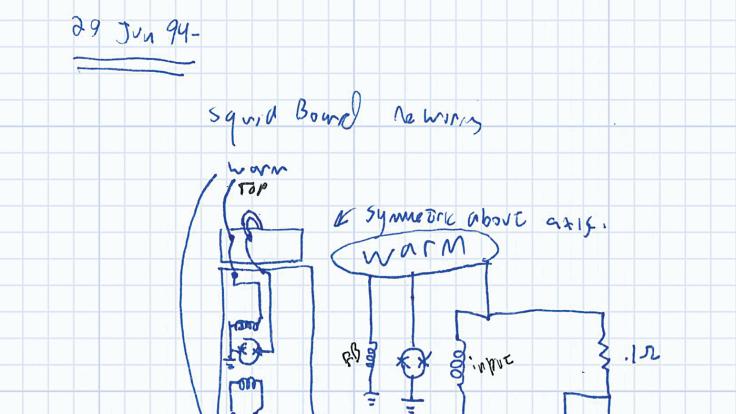 29 Jun 94
Squid Board rewiring
warm
TOP
symmetric above axis.
WARM
FB
input
.1Ω